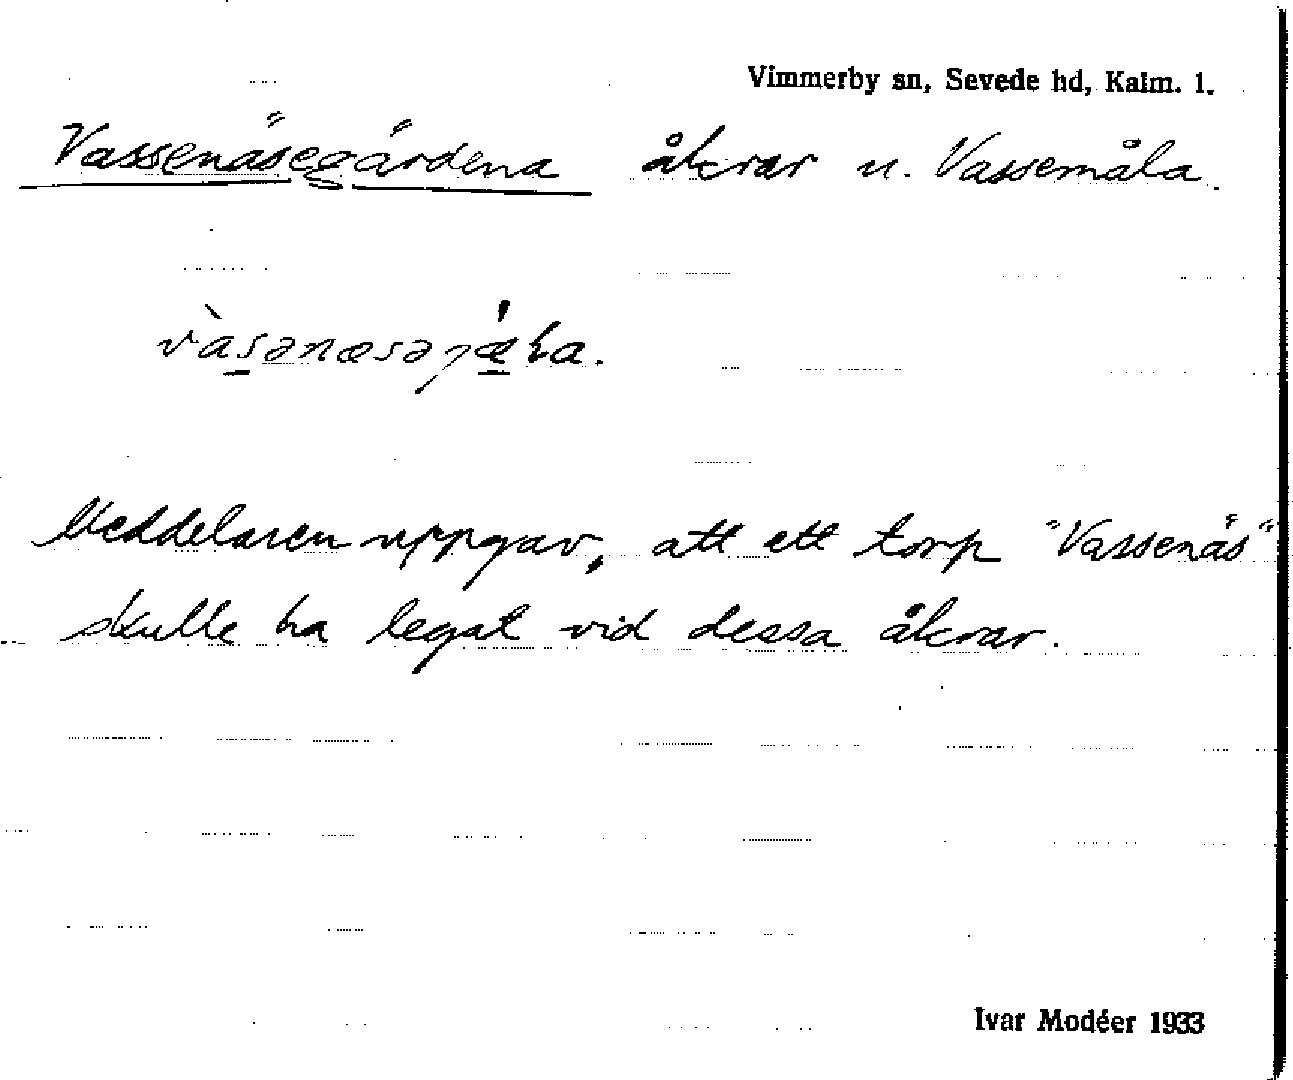 Vimmerby sn, Sevede hd, Kalm. l.
Vassenäsegårdena åkrar u. Vassemåla.
Meddelaren uppgav, att ett torp "Vassenäs"
skulle ha legat vid dessa åkrar.
Ivar Modéer 1933